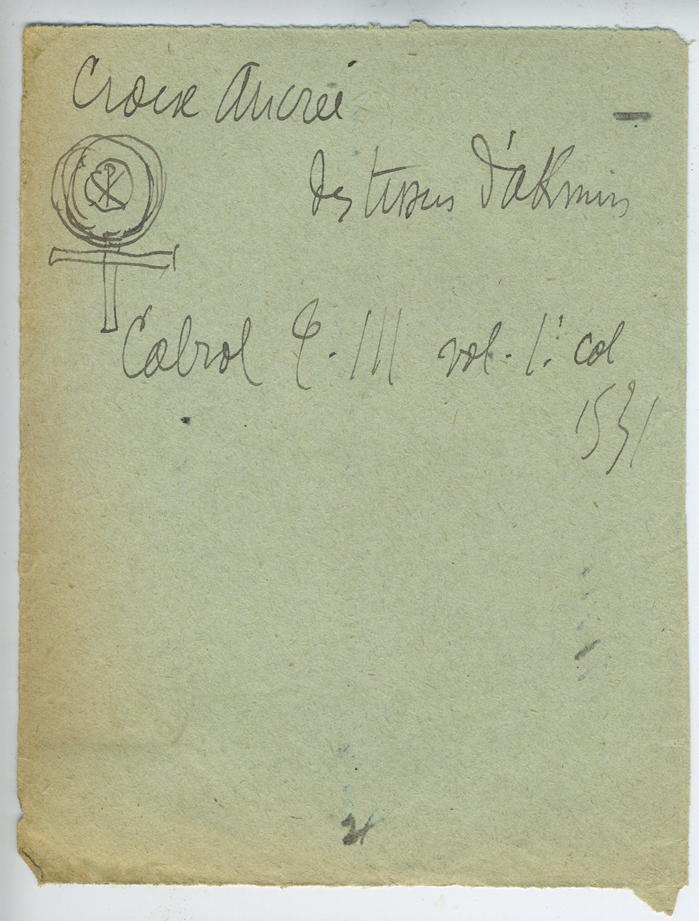 Croix Ancrée
des tissus d'akmin
Cabrol T. III vol. 1. col
1531